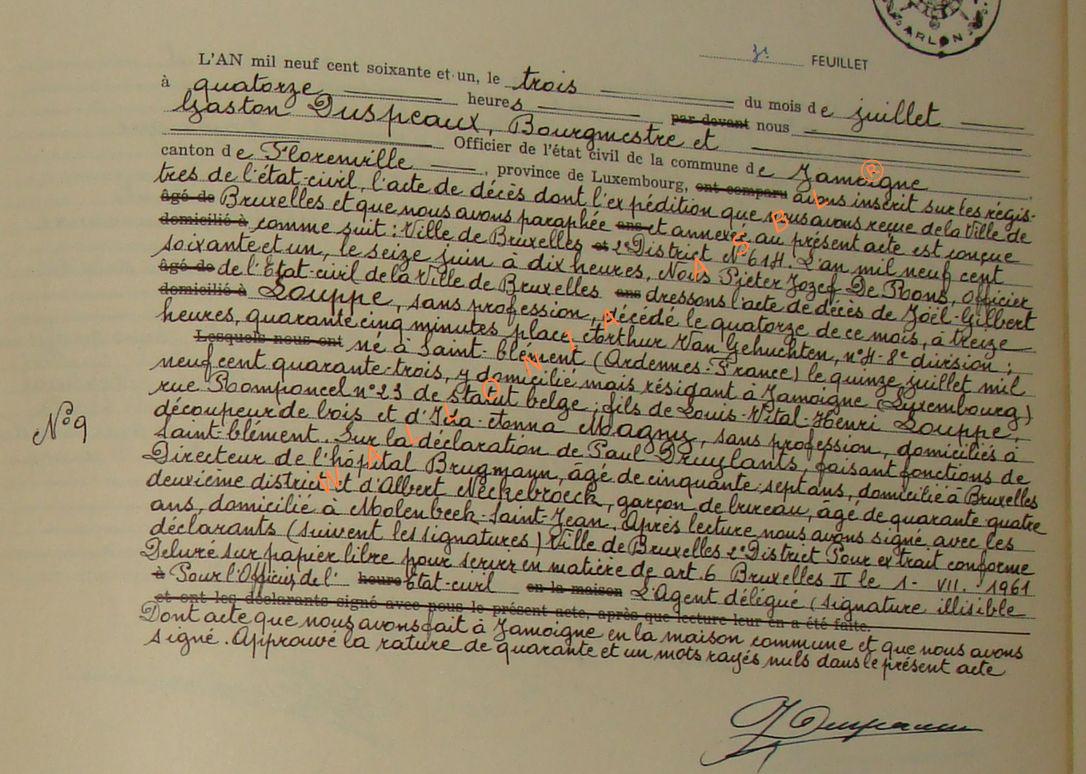 ARLON
3e FEUILLET
L'AN mil neuf cent soixante et un, le trois du mois de juillet
à quatorze heures par devant nous
Gaston Duspeaux, Bourgmestre et
Officier de l'état civil de la commune de Jamoigne
canton de Florenville, province de Luxembourg, ont comparu avons inscrit sur les régis-
tres de l'état-civil, l'acte de décès dont l'expédition que nous avons reçue de la Ville de
âgé de Bruxelles et que nous avons paraphée ans et annexée au présent acte est conçue
domicilié à comme suit: Ville de Bruxelles et 2e District N° 614. L'an mil neuf cent
soixante et un, le seize juin à dix heures, Nous Pieter Jozef De Rons, Officier
âgé de de l'Etat-civil de la Ville de Bruxelles ans dressons l'acte de décès de Joël-Gilbert
domicilié à Louppe, sans profession, décédé le quatorze de ce mois, à treize
heures, quarante cinq minutes, place Arthur Van Gehuchten, n° 4-8e division;
Lesquels nous ont né à Saint-Clément (Ardennes-France) le quinze juillet mil
neuf cent quarante-trois, y domicilié mais résidant à Jamoigne (Luxembourg)
rue Romponcel n° 23 de statut belge; fils de Louis-Vital-Henri Louppe,
découpeur de bois et d'Ida-Anna Magny, sans profession, domiciliés à
Saint-Clément. Sur la déclaration de Paul Druylants, faisant fonctions de
Directeur de l'hôpital Brugmann, âgé de cinquante-sept ans, domicilié à Bruxelles
deuxième district et d'Albert Neckebroeck, garçon de bureau, âgé de quarante quatre
ans, domicilié à Molenbeek-Saint-Jean. Après lecture nous avons signé avec les
déclarants (suivent les signatures) Ville de Bruxelles 2e District Pour extrait conforme
Délivré sur papier libre pour servir en matière de art. 6 Bruxelles II le 1-VII-1961
à Pour l'Officier de l' heure Etat-civil en la maison L'Agent délégué (signature illisible
et ont les déclarants signé avec nous le présent acte, après que lecture leur en a été faite.
Dont acte que nous avons fait à Jamoigne en la maison commune et que nous avons
signé. Approuvé la rature de quarante et un mots rayés nuls dans le présent acte
N° 9
WALLONIA ASBL ®